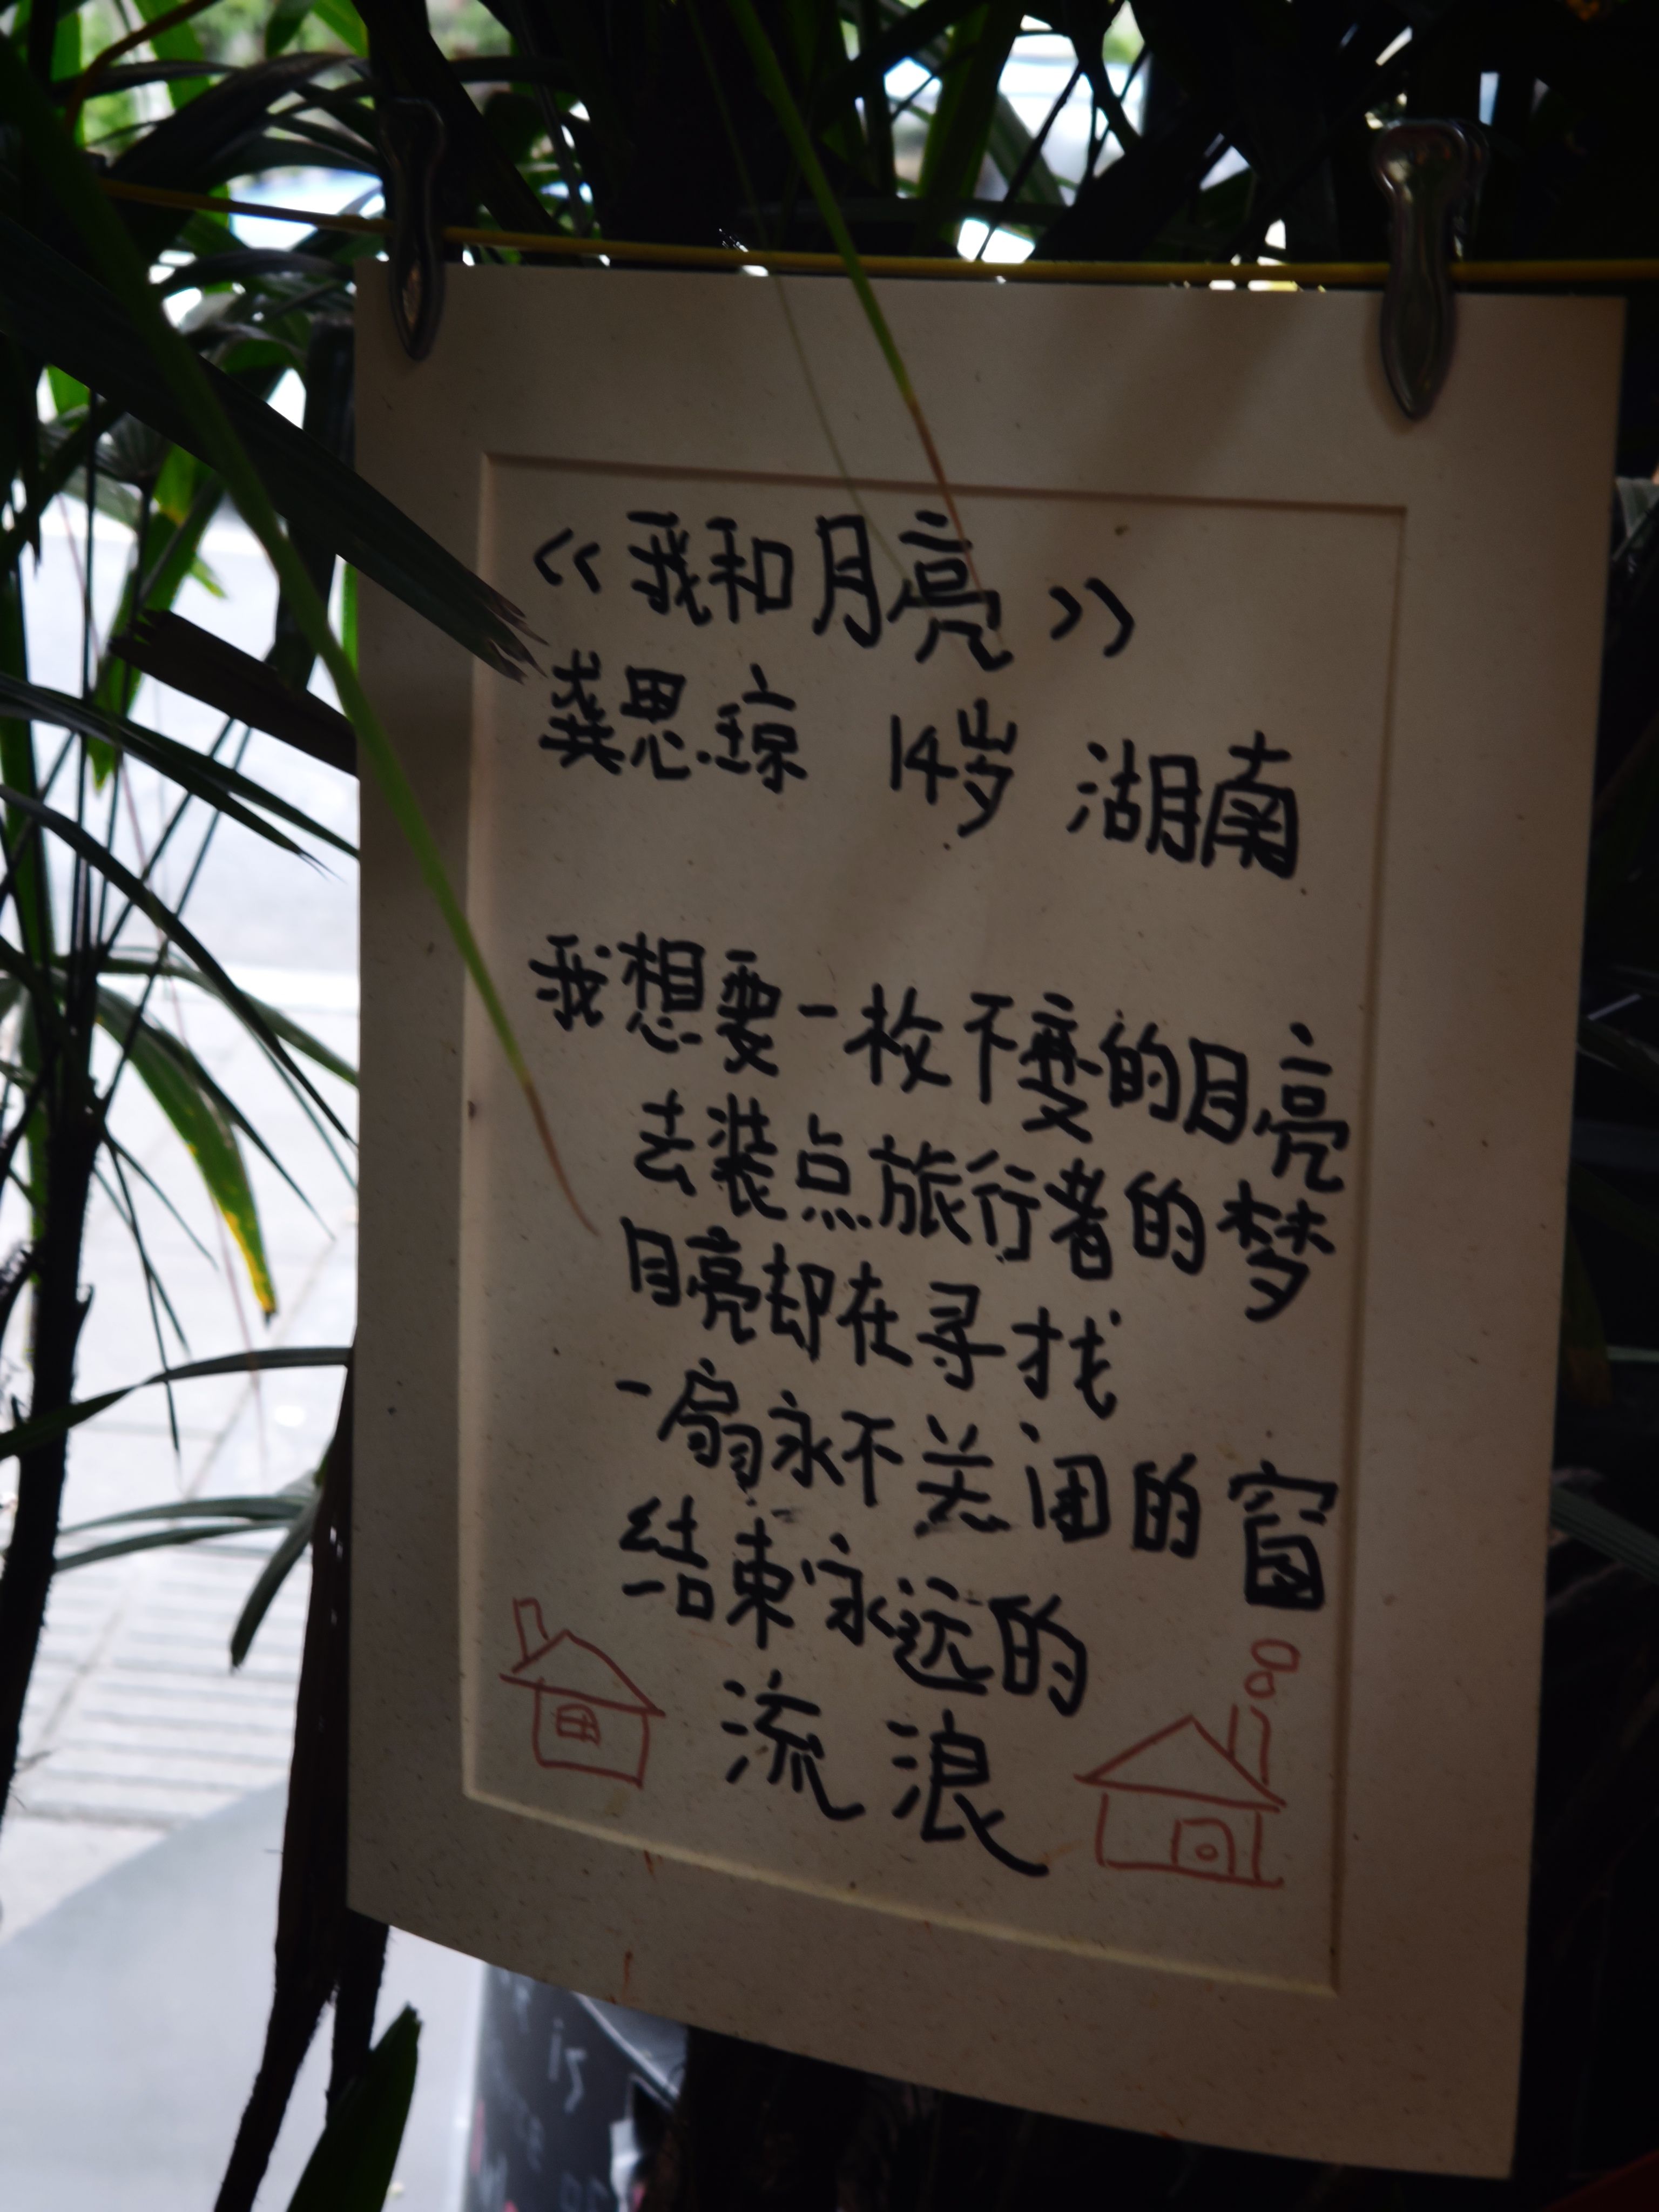 《我和月亮》
龚思琼 14岁 湖南
我想要一枚不变的月亮
去装点旅行者的梦
月亮却在寻找
一扇永不关闭的窗
结束永远的
流浪